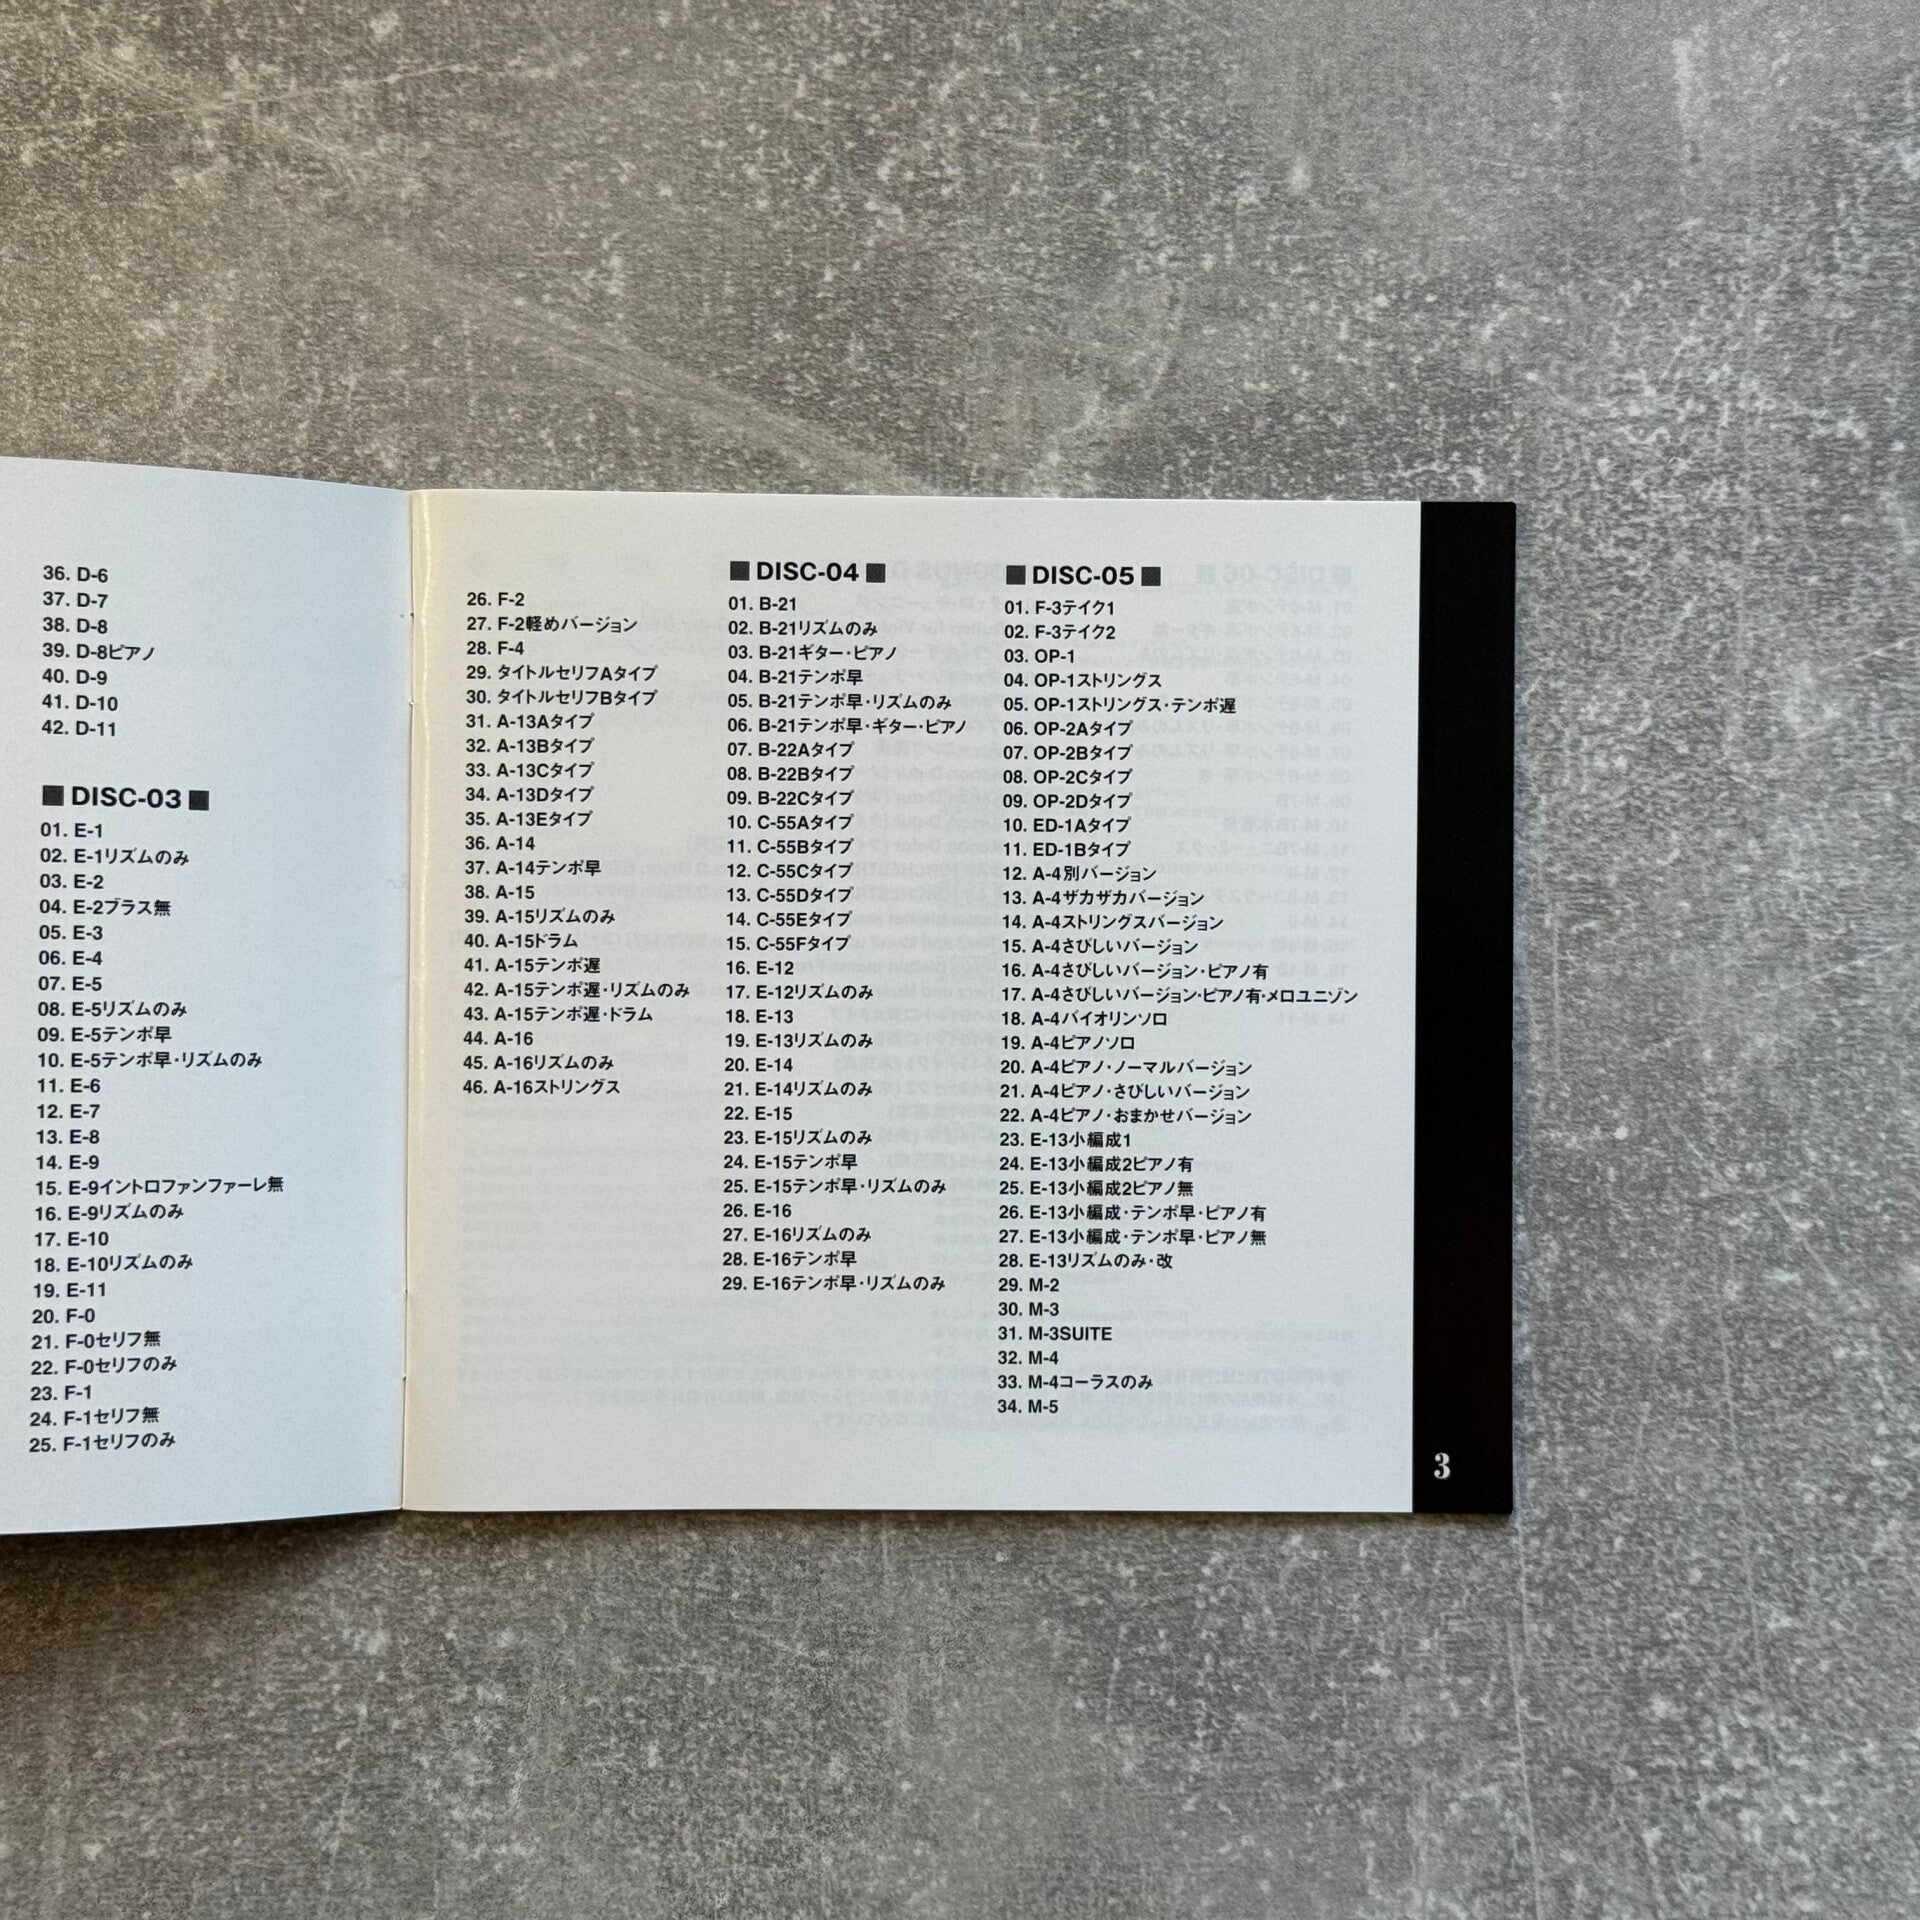 36. D-6
37. D-7
38. D-8
39. D-8ピアノ
40. D-9
41. D-10
42. D-11
■ DISC-03 ■
01. E-1
02. E-1リズムのみ
03. E-2
04. E-2ブラス無
05. E-3
06. E-4
07. E-5
08. E-5リズムのみ
09. E-5テンポ早
10. E-5テンポ早・リズムのみ
11. E-6
12. E-7
13. E-8
14. E-9
15. E-9イントロファンファーレ無
16. E-9リズムのみ
17. E-10
18. E-10リズムのみ
19. E-11
20. F-0
21. F-0セリフ無
22. F-0セリフのみ
23. F-1
24. F-1セリフ無
25. F-1セリフのみ
26. F-2
27. F-2軽めバージョン
28. F-4
29. タイトルセリフAタイプ
30. タイトルセリフBタイプ
31. A-13Aタイプ
32. A-13Bタイプ
33. A-13Cタイプ
34. A-13Dタイプ
35. A-13Eタイプ
36. A-14
37. A-14テンポ早
38. A-15
39. A-15リズムのみ
40. A-15ドラム
41. A-15テンポ遅
42. A-15テンポ遅・リズムのみ
43. A-15テンポ遅・ドラム
44. A-16
45. A-16リズムのみ
46. A-16ストリングス
■ DISC-04 ■
01. B-21
02. B-21リズムのみ
03. B-21ギター・ピアノ
04. B-21テンポ早
05. B-21テンポ早・リズムのみ
06. B-21テンポ早・ギター・ピアノ
07. B-22Aタイプ
08. B-22Bタイプ
09. B-22Cタイプ
10. C-55Aタイプ
11. C-55Bタイプ
12. C-55Cタイプ
13. C-55Dタイプ
14. C-55Eタイプ
15. C-55Fタイプ
16. E-12
17. E-12リズムのみ
18. E-13
19. E-13リズムのみ
20. E-14
21. E-14リズムのみ
22. E-15
23. E-15リズムのみ
24. E-15テンポ早
25. E-15テンポ早・リズムのみ
26. E-16
27. E-16リズムのみ
28. E-16テンポ早
29. E-16テンポ早・リズムのみ
■ DISC-05 ■
01. F-3テイク1
02. F-3テイク2
03. OP-1
04. OP-1ストリングス
05. OP-1ストリングス・テンポ遅
06. OP-2Aタイプ
07. OP-2Bタイプ
08. OP-2Cタイプ
09. OP-2Dタイプ
10. ED-1Aタイプ
11. ED-1Bタイプ
12. A-4別バージョン
13. A-4ザカザカバージョン
14. A-4ストリングスバージョン
15. A-4さびしいバージョン
16. A-4さびしいバージョン・ピアノ有
17. A-4さびしいバージョン・ピアノ有・メロユニゾン
18. A-4バイオリンソロ
19. A-4ピアノソロ
20. A-4ピアノ・ノーマルバージョン
21. A-4ピアノ・さびしいバージョン
22. A-4ピアノ・おまかせバージョン
23. E-13小編成1
24. E-13小編成2ピアノ有
25. E-13小編成2ピアノ無
26. E-13小編成・テンポ早・ピアノ有
27. E-13小編成・テンポ早・ピアノ無
28. E-13リズムのみ・改
29. M-2
30. M-3
31. M-3SUITE
32. M-4
33. M-4コーラスのみ
34. M-5
3